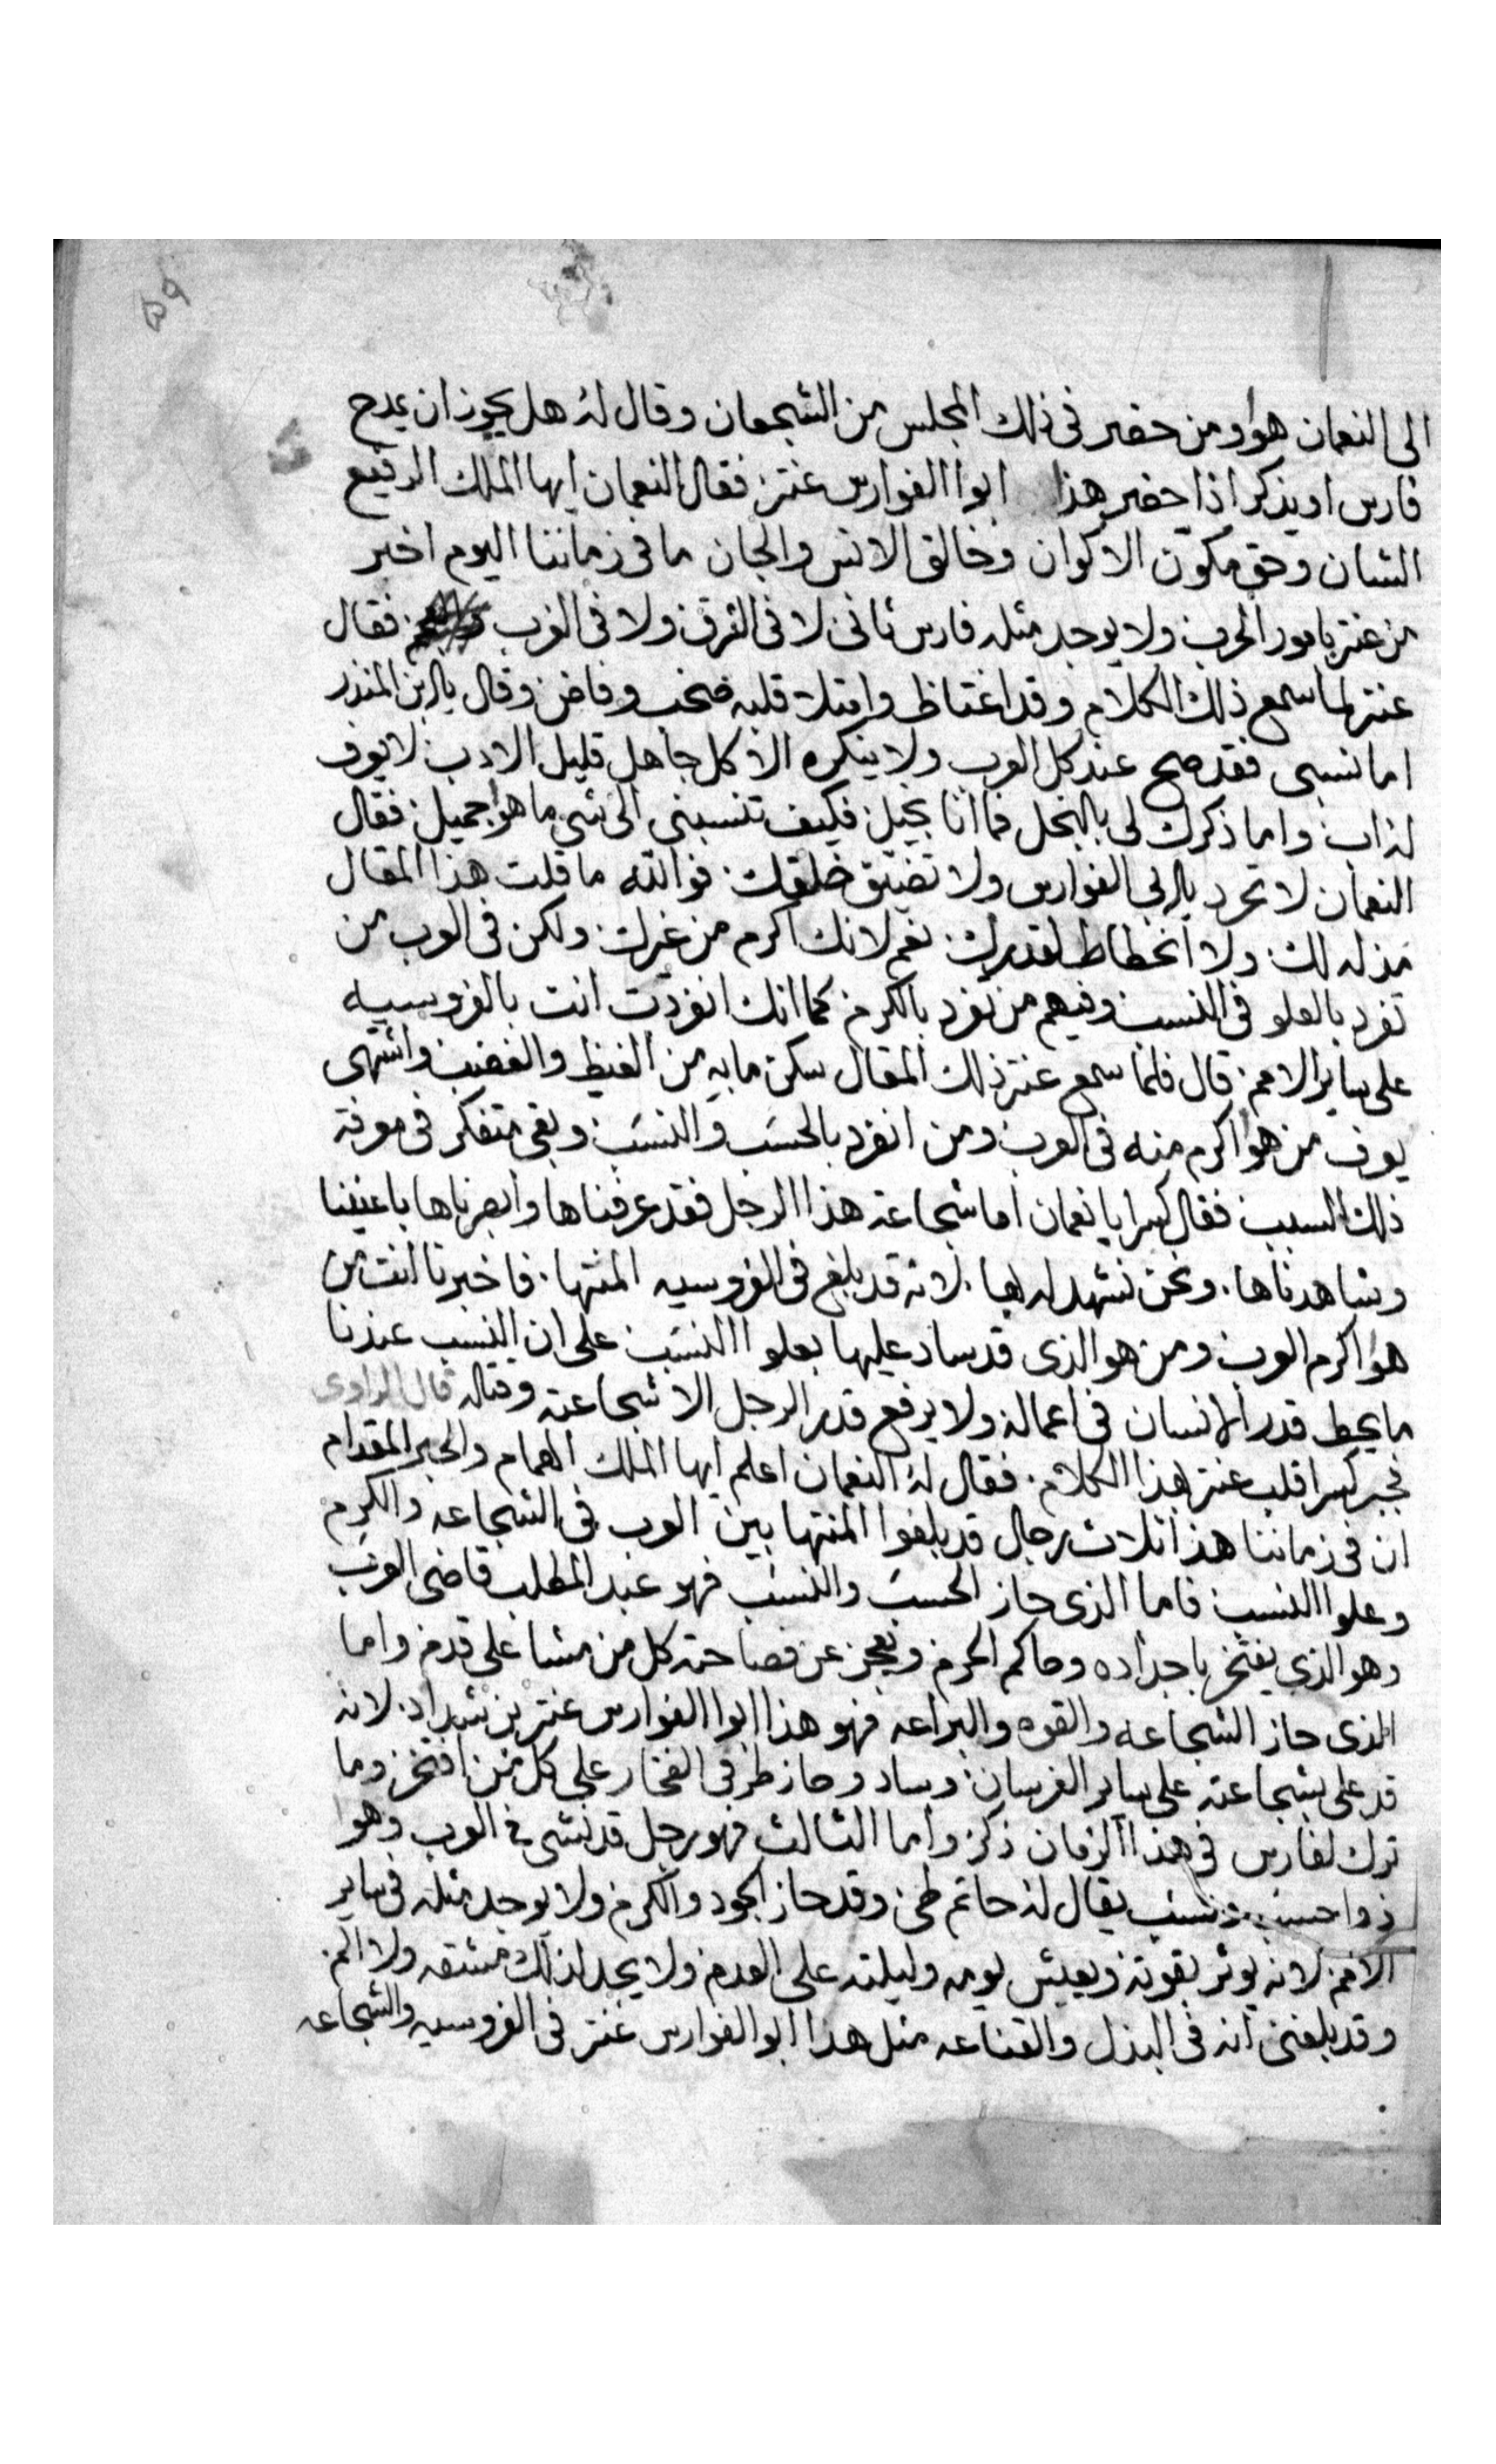 ٥٩
الى النعمان هوا ومن حضر فى ذلك المجلس من الشجعان وقال له هل يجوز ان يمدح
فارس او يذكر اذا حضر هذا ابوا الفوارس عنتر فقال النعمان ايها الملك الرفيع
الشان وحق مكون الاكوان وخالق الانس والجان ما فى زماننا اليوم اخبر
من عنتر بامور الحرب ولا يوجد مثله فارس ثانى لا فى الشرق ولا فى الغرب فقال
عنتر لما سمع ذلك الكلام وقد اغتاظ وامتلا قلبه غضب وفاض وقال يابن المنذر
اما نسبى فقد صح عند كل العرب ولا ينكره الا كل جاهل قليل الادب لا يعرف
له اب واما ذكرك لى بالبخل فما انا بخيل فكيف تنسبنى الى شى ما هوا جميل فقال
النعمان لا تحرد يابى الفوارس ولا تضيق خلقك فوالله ما قلت هذا المقال
مذله لك ولا انحطاط لقدرك نعم لانك اكرم من غيرك ولكن فى العرب من
تفرد بالعلو فى النسب وفيهم من تفرد بالكرم كما انك انفردت انت بالفروسيه
على ساير الامم قال فلما سمع عنتر ذلك المقال سكن ما به من الغيظ والغضب واشتهى
يعرف من هوا اكرم منه فى العرب ومن انفرد بالحسب والنسب وبقى متفكر فى معرفة
ذلك السبب فقال كسرا يا نعمان اما شجاعة هذا الرجل فقد عرفناها وابصرناها باعيننا
وشاهدناها ونحن نشهد له بها لانه قد بلغ فى الفروسيه المنتها فاخبرنا انت من
هوا اكرم العرب ومن هو الذى قد ساد عليها بعلو االنسب على ان النسب عندنا
ما يحط قدر الانسان فى اعماله ولا يرفع قدر الرجل الا شجاعته وقتاله قال الراوى
فجبر كسرا قلب عنتر بهذا الكلام فقال له النعمان اعلم ايها الملك الهمام والحبر المقدام
ان فى زماننا هذا ثلاث رجال قد بلغوا المنتها بين العرب فى الشجاعه والكرم
وعلوا النسب فاما الذى حاز الحسب والنسب فهو عبد المطلب قاضى العرب
وهو الذى يفتخر باجداده وحاكم الحرم ويعجز عن فصاحته كل من مشا على قدم واما
الذى حاز الشجاعه والقوه والبراعه فهو هذا ابوا الفوارس عنتر بن شداد لانه
قد على بشجاعته على ساير الفرسان وساد وحاز طرفى الفخار على كل من افتخر وما
ترك لفارس فى هذا الزمان ذكر واما الثالث فهو رجل قد نشى فى العرب وهوا
ذوا حسب ونسب يقال له حاتم طى وقد حاز الجود والكرم ولا يوجد مثله فى ساير
الامم لانه يوثر بقوته ويعيش يومه وليلته على العدم ولا يجد لذلك مشقه ولا الم
وقد بلغنى انه فى البذل والقناعه مثل هذا ابوا الفوارس عنتر فى الفروسيه والشجاعه